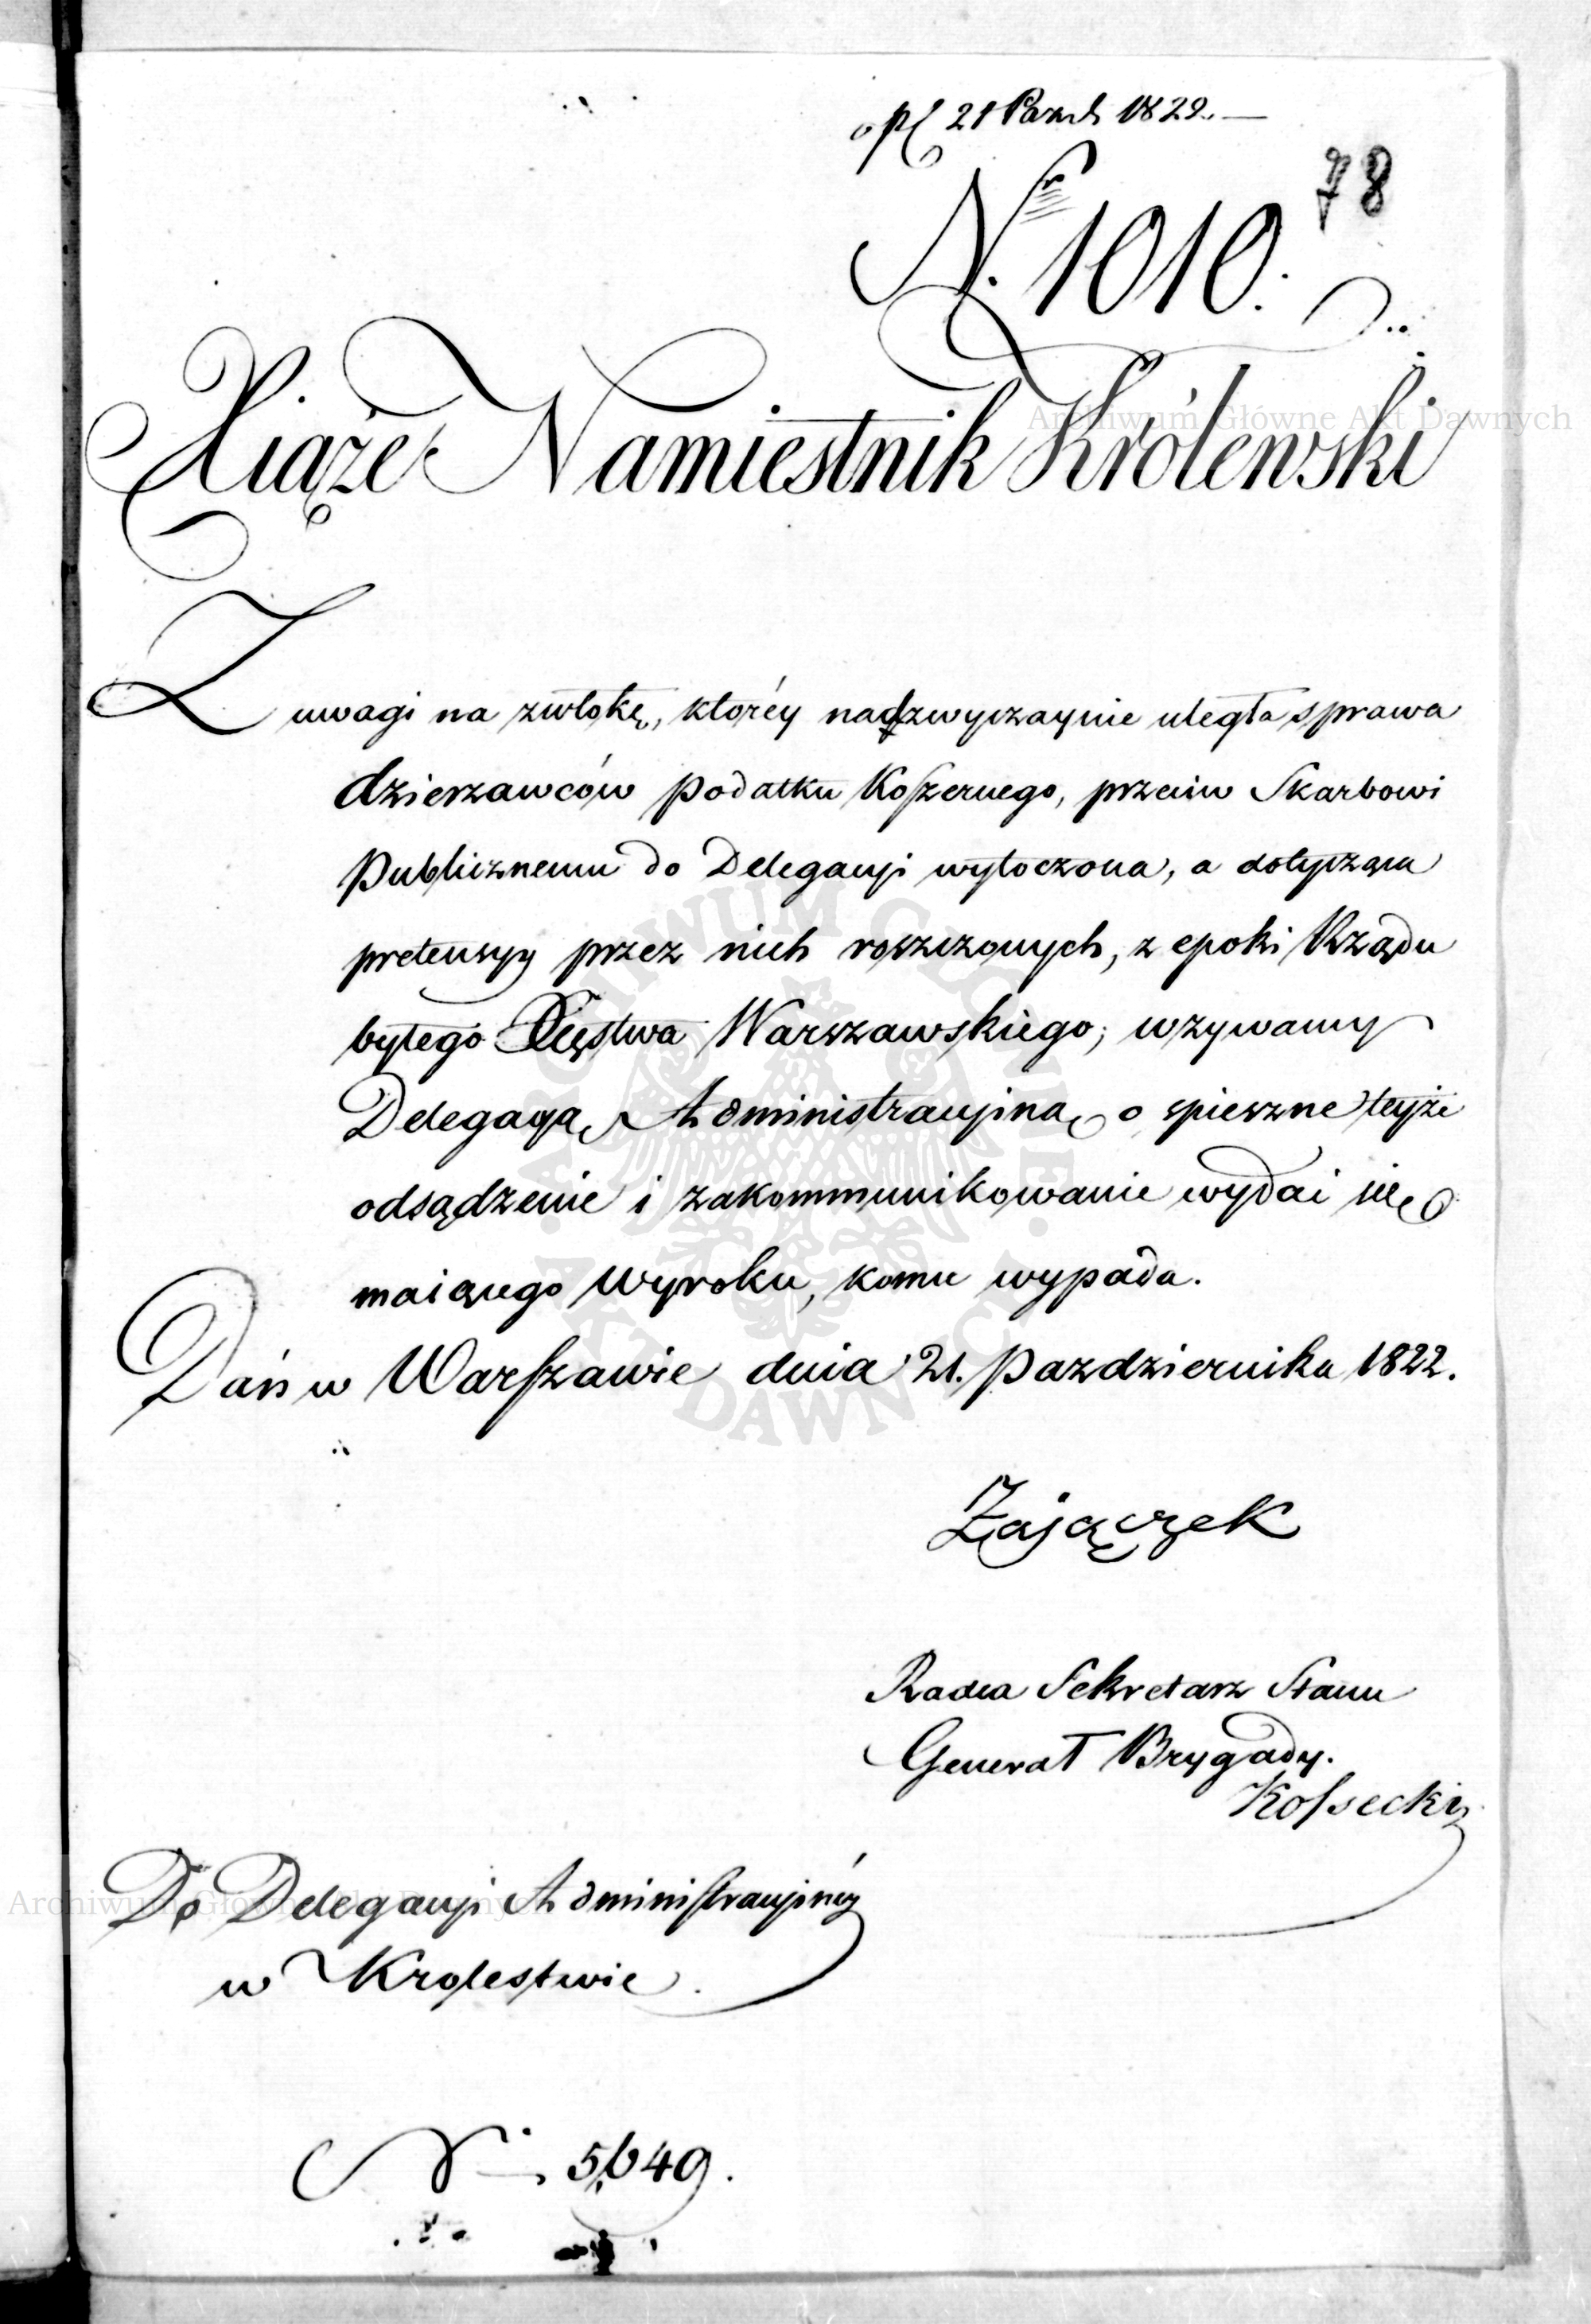 opł 21 Pazd. 1822. —
78
Nr 1010.
Xiąże Namiestnik Królewski
Z uwagi na zwłokę, któréy nadzwyczaynie uległa sprawa
dzierzawców podatku Koszernego, przeciw Skarbowi
Publicznemu do Delegacyi wytoczona, a dotycząca
pretensyy przez nich roszczonych, z epoki Rządu
byłego Xięstwa Warszawskiego; wzywamy
Delegacyą Administracyiną o spieszne teyże
odsądzenie i zakommunikowanie wydai się
maiącego Wyroku, komu wypada.
Dań w Warszawie dnia 21. Pazdziernika 1822.
Zajączek
Radca Sekretarz Stanu
Generał Brygady.
Kossecki
Do Delegacyi Administracyinéy
w Krolestwie.
N 5,649.
Archiwum Główne Akt Dawnych
Archiwum Główne Akt Dawnych
ARCHIWUM GŁÓWNE AKT DAWNYCH